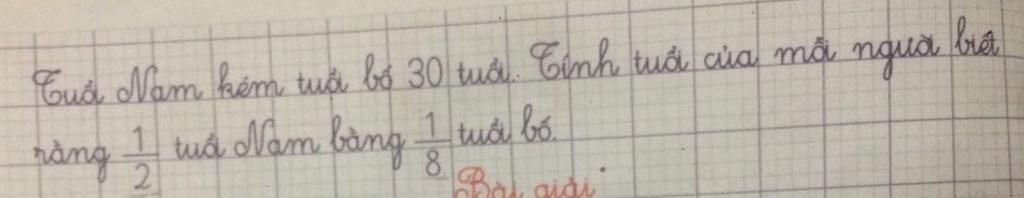 Tuổi Nam kém tuổi bố 30 tuổi. Tính tuổi của mỗi người biết
rằng 1/2 tuổi Nam bằng 1/8 tuổi bố.
Bài giải